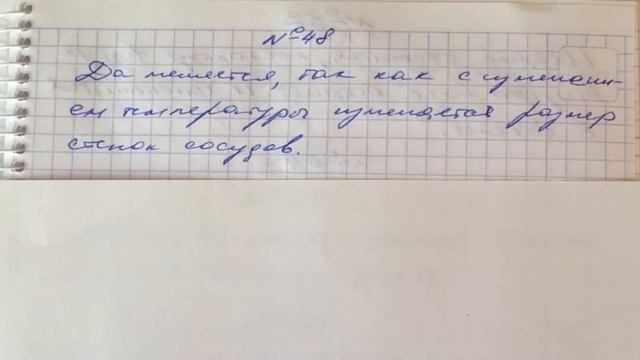 №48
Да меняется, так как с изменени-
ем температуры изменяется размер
стенок сосудов.